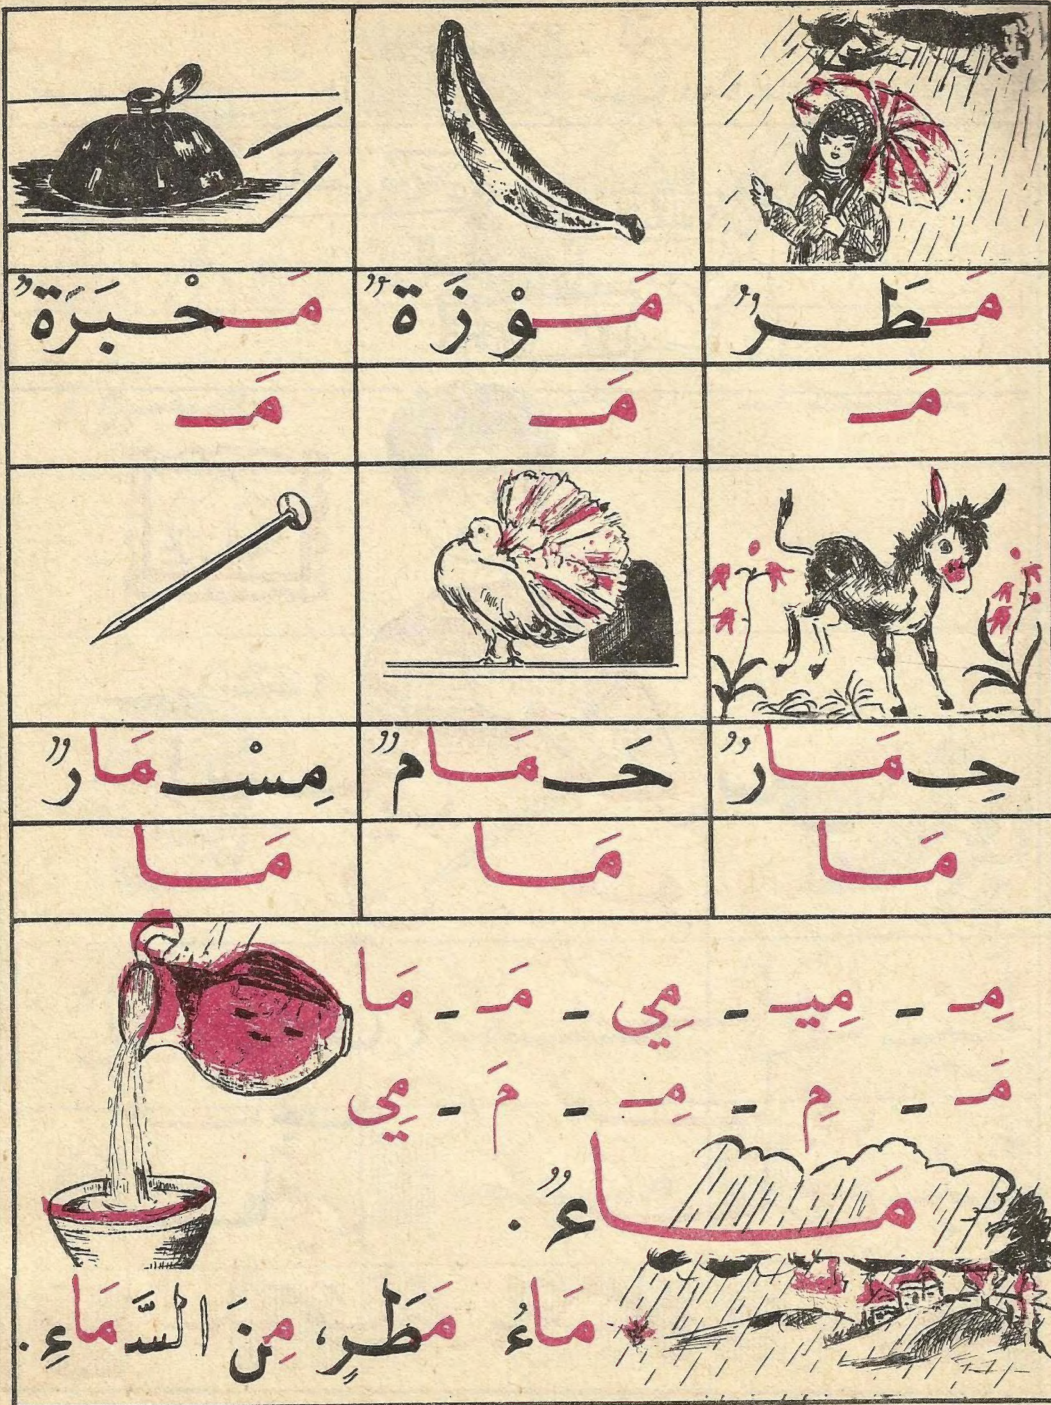 مَطَرٌ مَوْزَةٌ مَحْبَرَةٌ
مَـ مَـ مَـ
حِمَارٌ حَمَامٌ مِسْمَارٌ
مَا مَا مَا
مِـ - مِيـ - مِي - مَـ - مَا
مَـ - مِ - مِـ - مَ - مِي
مَاءٌ.
مَاءُ مَطَرٍ، مِنَ السَّمَاءِ.